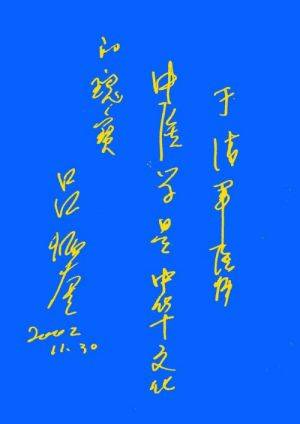 于军医师
中医学是中华文化
的瑰宝
吕炳奎
2002
11.30